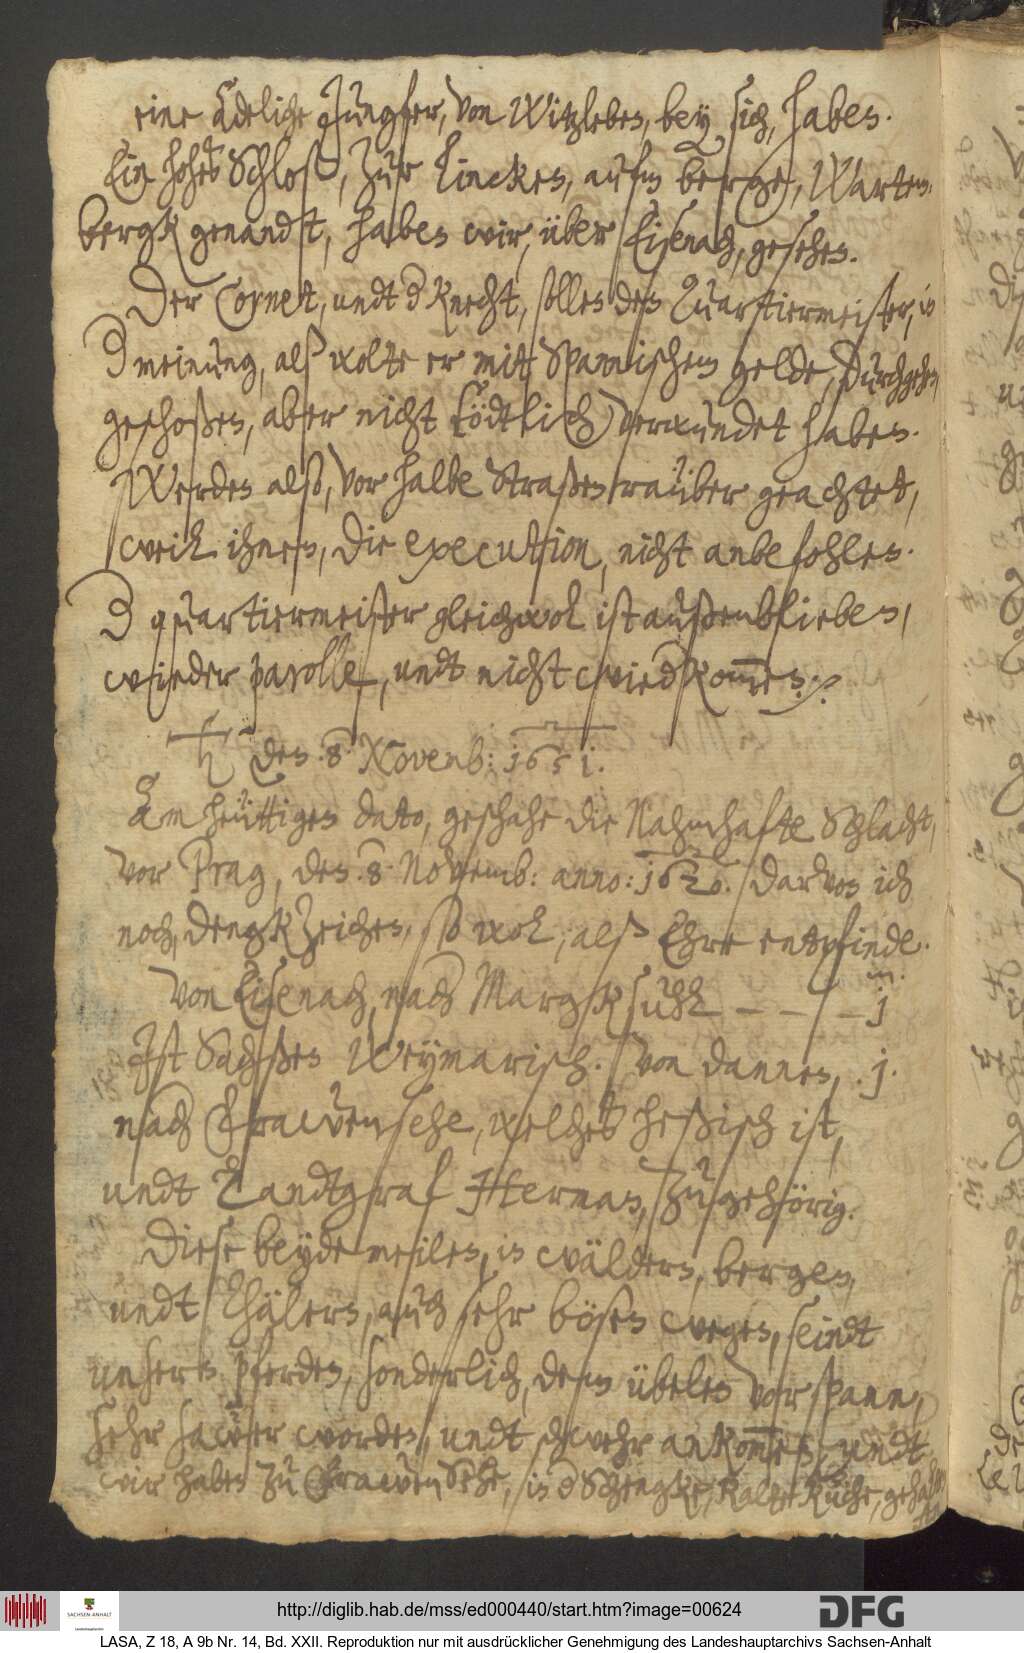 eine Adeliche Jungfer, von Witzleben, bey sich, haben.
Ein hohes Schloß, zur Lincken, aufm berge, Warten-
bergk genandt, haben wir, über Eisenach, gesehen.
Der Cornet, undt d Knecht, sollen den Quartiermeister, in
d meinung, alß wolte er mitt Spannischem gelde, durchgehen,
geschoßen, aber nicht tödtlich verwundet haben.
Werden alß, vor halbe Straßenraüber geachtet,
weil ihnen, die executtion, nicht anbefohlen.
D quartiermeister gleichwol ist außenblieben,
wieder parolle, undt nicht wiedkommen.
♄ den .8. Novemb: 1651.
Am heüttigen dato, geschahe die Nahmhafte Schlacht,
vor Prag, den .8. Novemb: anno: 1620. darvon ich
noch, dengkzeichen, so wol, alß Ehre entpfinde.
Von Eisenach, nach Margksuhl – – – j m.
Ist Sachßen Weymarisch. Von dannen, .j.
nach Frawensehe, welches heßisch ist,
undt Landtgraf Herman, zugehörig.
Diese beyde meilen, in wäldern, bergen,
undt Thälern, auch sehr bösen wegen, seindt
unsern pferden, sonderlich, dem übelen Vorspann,
sehr sawer worden, undt schwehr ankommen, undt
wir haben zu Frawensehe, in d Schengke, kalte Küche, gehalten.
http://diglib.hab.de/mss/ed000440/start.htm?image=00624
SACHSEN-ANHALT
Landeshauptarchiv
DFG
LASA, Z 18, A 9b Nr. 14, Bd. XXII. Reproduktion nur mit ausdrücklicher Genehmigung des Landeshauptarchivs Sachsen-Anhalt